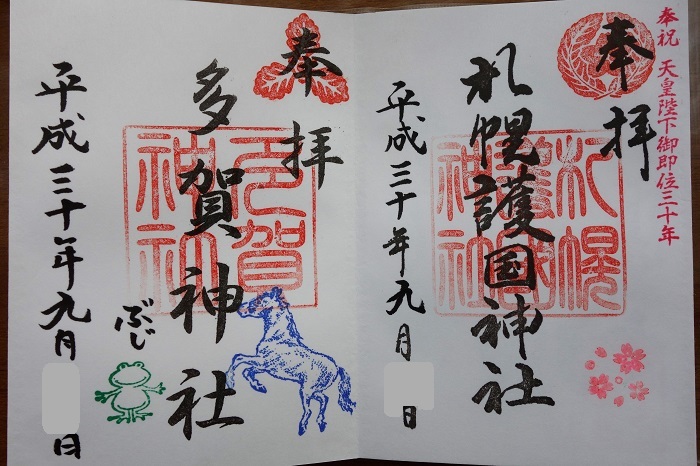 奉祝 天皇陛下御即位三十年
奉拝
札幌護国神社
札幌護国神社
平成三十年九月 日
奉拝
多賀神社
多賀神社
ぶじ
平成三十年九月 日